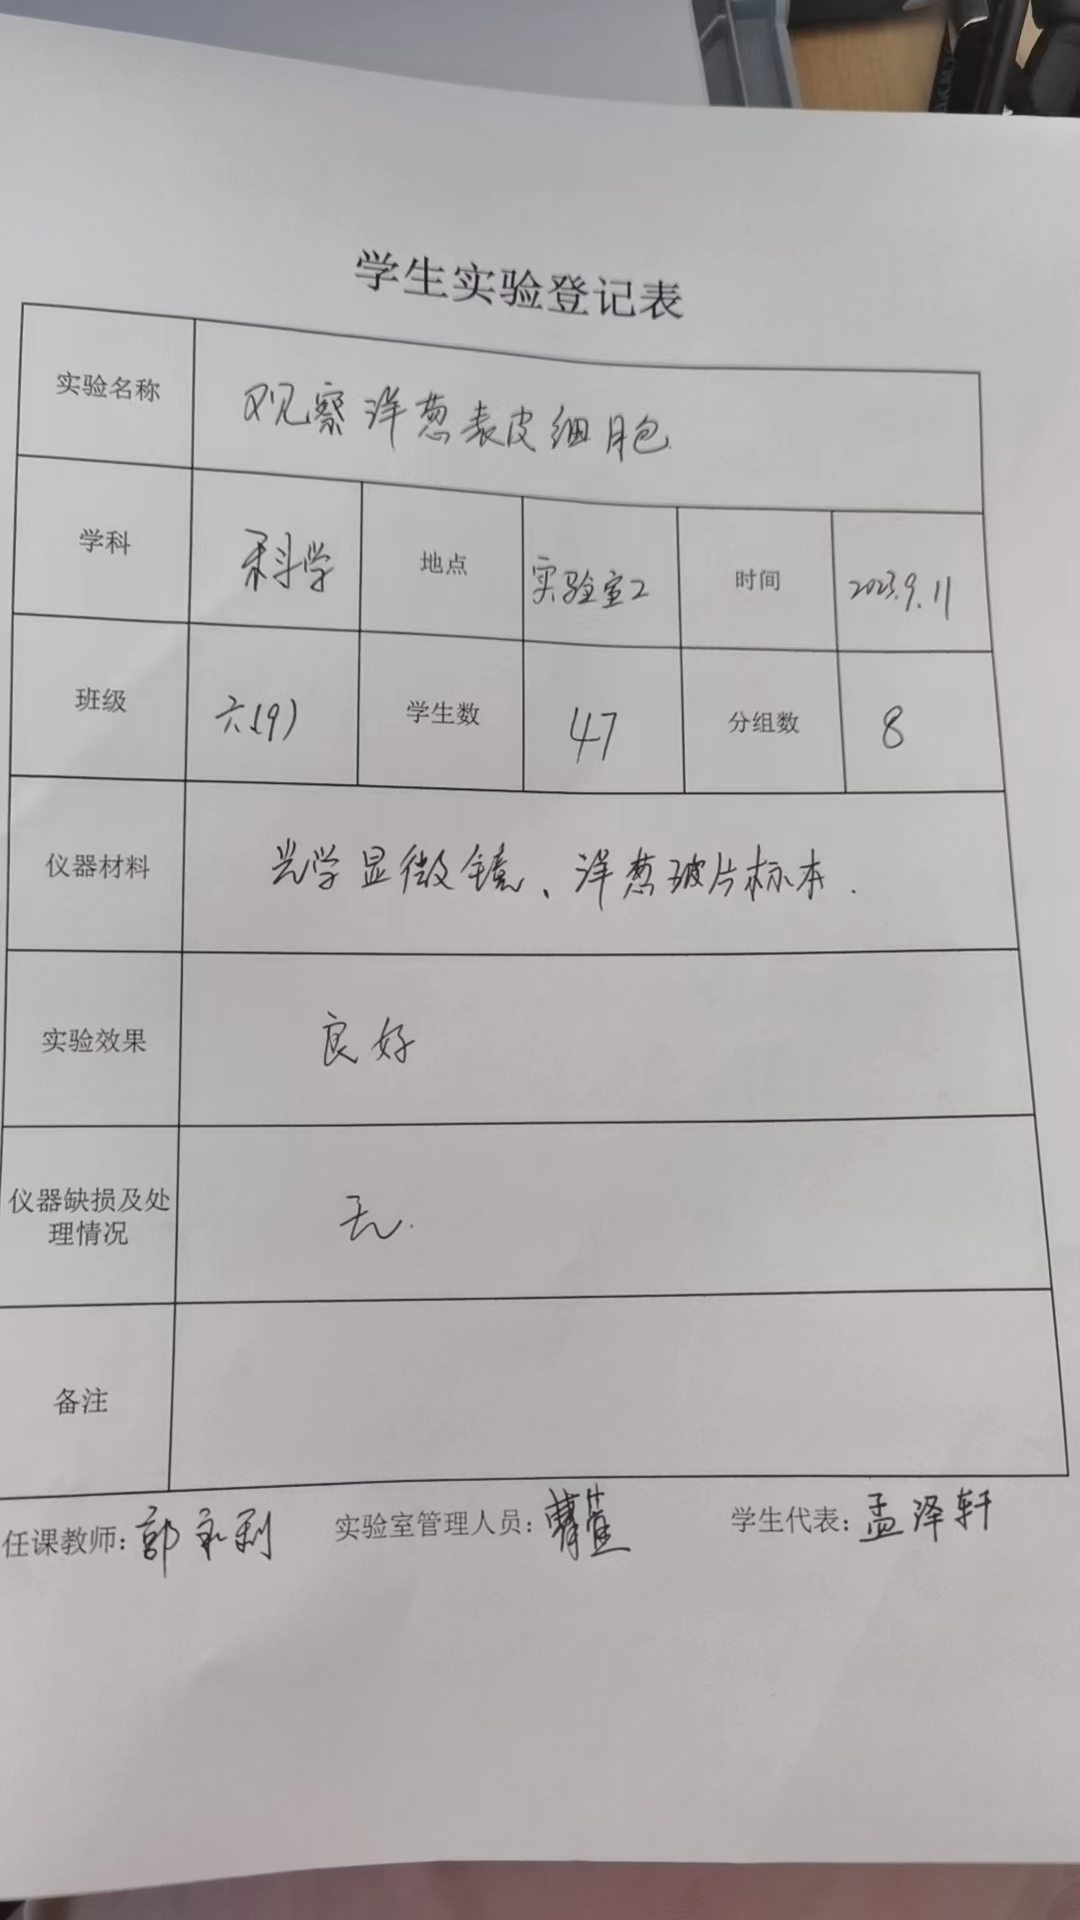 学生实验登记表
实验名称 观察洋葱表皮细胞
学科 科学 地点 实验室2 时间 2023.9.11
班级 六(9) 学生数 47 分组数 8
仪器材料 光学显微镜、洋葱玻片标本.
实验效果 良好
仪器缺损及处
理情况 无.
备注
任课教师:郭永利 实验室管理人员: 学生代表:孟泽轩